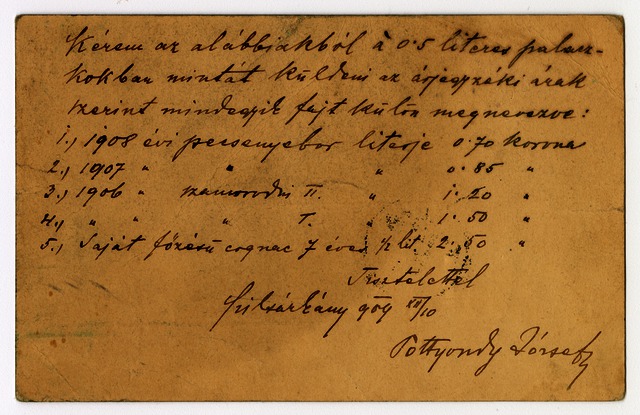 Kérem az alábbiakból à 0·5 literes palacz-
kokban mintát küldeni az árjegyzéki árak
szerint mindegyik fajt külön megnevezve:
1., 1908 évi pecsenyebor literje 0·70 korona
2., 1907 " " " 0·85 "
3., 1906 " szamorodni II. " 1·20 "
4., " " " I. " 1·50 "
5., Saját főzésű cognac 7 éves ½ lit. 2·50 "
Tisztelettel
Szilsárkány 909 XII/10
Pottyondy József